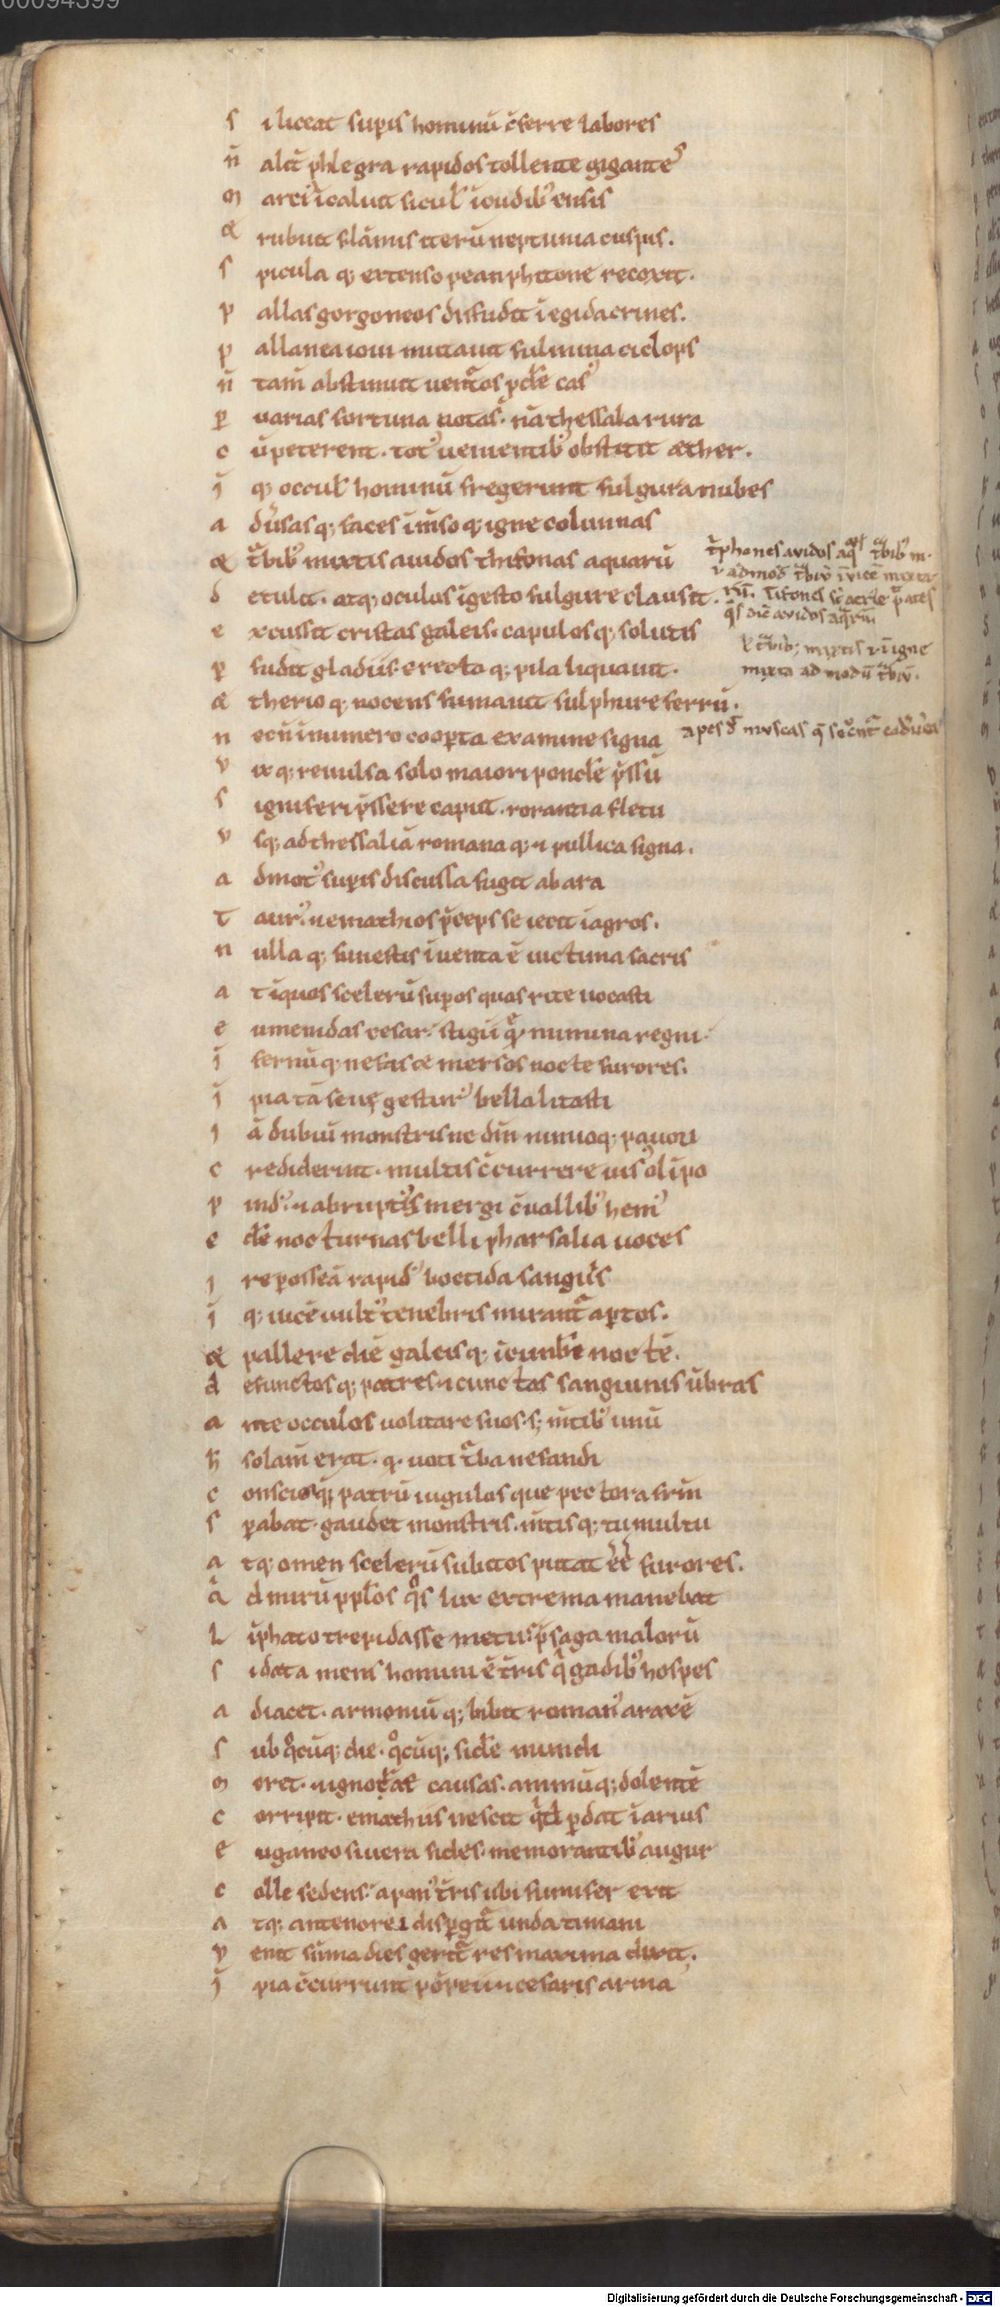 s i liceat supis hominũ c̃ferre labores
ñ alit̃ phlegra rapidos tollente gigantes
m arti᷒ ĩcaluit sicul᷒ ĩcudib᷒ ensis
& rubuit flãmis iterũ neptunia cuspis.
s picula q; extenso pean phitone recoxit.
p allas gorgoneos diffudit ĩ egida crines.
p allanea ioui mutauit fulmina ciclops
ñ tam̃ abstinuit uent᷒os pd̃e cas᷒
p uarias fortuna notas. nã thessala rura
c ũ peterent. tot᷒ uenientib᷒ obstitit æther.
ĩ q; occul᷒ hominũ fregerunt fulgura nubes
a duersas q; faces ĩmẽso q; igne columnas
& t̃bib᷒ mixtis auidos thifonas aquarũ
d etulit. atq; oculos ĩgesto fulgure clausit.
e xcussit cristas galeis. capulos q; solutis
p fudit gladiis erepta q; pila liquauit.
æ therio q; nocens fumauit sulphure ferrũ.
n ecñ ĩnumero coopta examine signa
v ix q; reuulsa solo maiori pond̃e p̃ssũ
s igniferi p̃ssere caput. rorantia fletu
v sq; ad thessaliã romana q; ⁊ pullica signa.
a dmot᷒ supis discussa fugit ab ara
t aur᷒. ⁊ emathios p̃ceps se iecit ĩ agros.
n ulla q; funestis ĩuenta ẽ uictima sacris
a t tu quos scelerũ supos quas rite uocasti
e umenidas cesar. stigii q̃ numina regni.
ĩ fernũ q; nefas & mersos nocte furores.
ĩ pia tã seuę gestur᷒ bella litasti
i ã dubiũ monstris ne dm̃ nimioq; pauori
c rediderint. multis c̃currere uis᷒ olĩpo
p ind᷒. ⁊ abruptis mergi c̃uallib᷒ hem᷒
e d̃e nocturnas belli pharsalia uoces
i re p osseã rapid᷒ boetida sanguis
ĩ q; uicẽ uult᷒ tenebris mirant̃ aptos.
& pallere diẽ galeis q; ĩcumb̃e noctẽ.
d efunctos q; patres ⁊ cunctas sanguinis ũbras
a nte occulos uolitare suos. s; m̃tib᷒ unũ
h̃ solam̃ erat. q. uoti t̃ba nefandi
c onscia q; patrũ iugulos que pectora frm̃
s pabat. gaudet monstris. m̃tis q; tumultu
a tq; omen scelerũ subitos putat ẽẽ furores.
q̃ d mirũ pplos q̃s lux extrema manebat
L ĩphato trepidasse metu. p̃saga malorũ
s i data mens homini ẽ t̃ris q̃ gadib᷒ hospes
a diacet. armoniũ q; bibit roman᷒ araxẽ
s ub q̃cũq; die. q̃cũq; sid̃e mundi
m eret. ⁊ ignorat causas. animũ q; dolentẽ
c orripit. emathiis nescit q̃d pdat ĩ aruis
e uganeo si uera fides. memorantib᷒ augur
c olle sedens. apon᷒ t̃ris ubi fumifer exit
a tq; antenorei dispgit̃ unda timaui
v enit sũma dies gerit̃ res maxima dixit.
ĩ pia c̃currunt põpei ⁊ cesaris arma
t̃phones auidos aq̃
t̃bib᷒ m.
ad modũ t̃biũ
apes ł muscas q̃